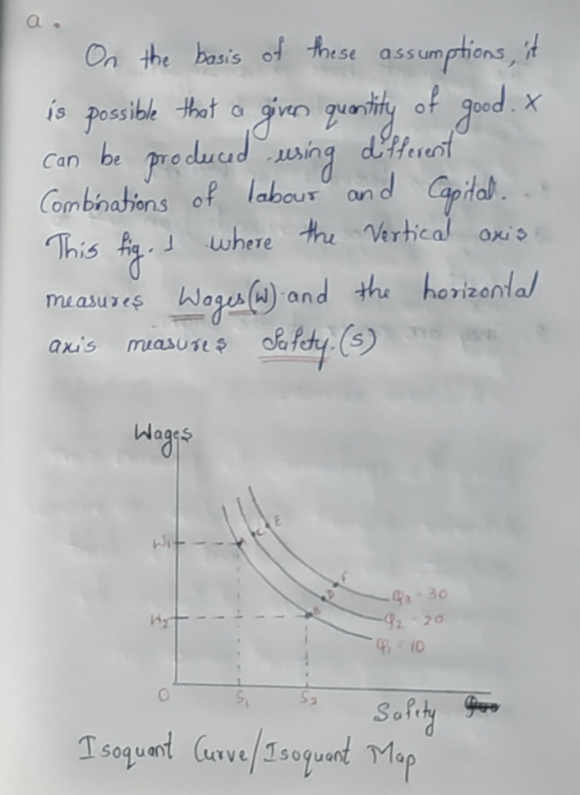 a.
On the basis of these assumptions, it
is possible that a given quantity of good. X
can be produced using different
Combinations of labour and Capital.
This fig. 1 where the Vertical axis
measures Wages(W) and the horizontal
axis measures Safety.(S)
Wages
E
W1 A C
F
D Q3 = 30
W2 B Q2 = 20
Q1 = 10
O S1 S2
Safety
Isoquant Curve/Isoquant Map